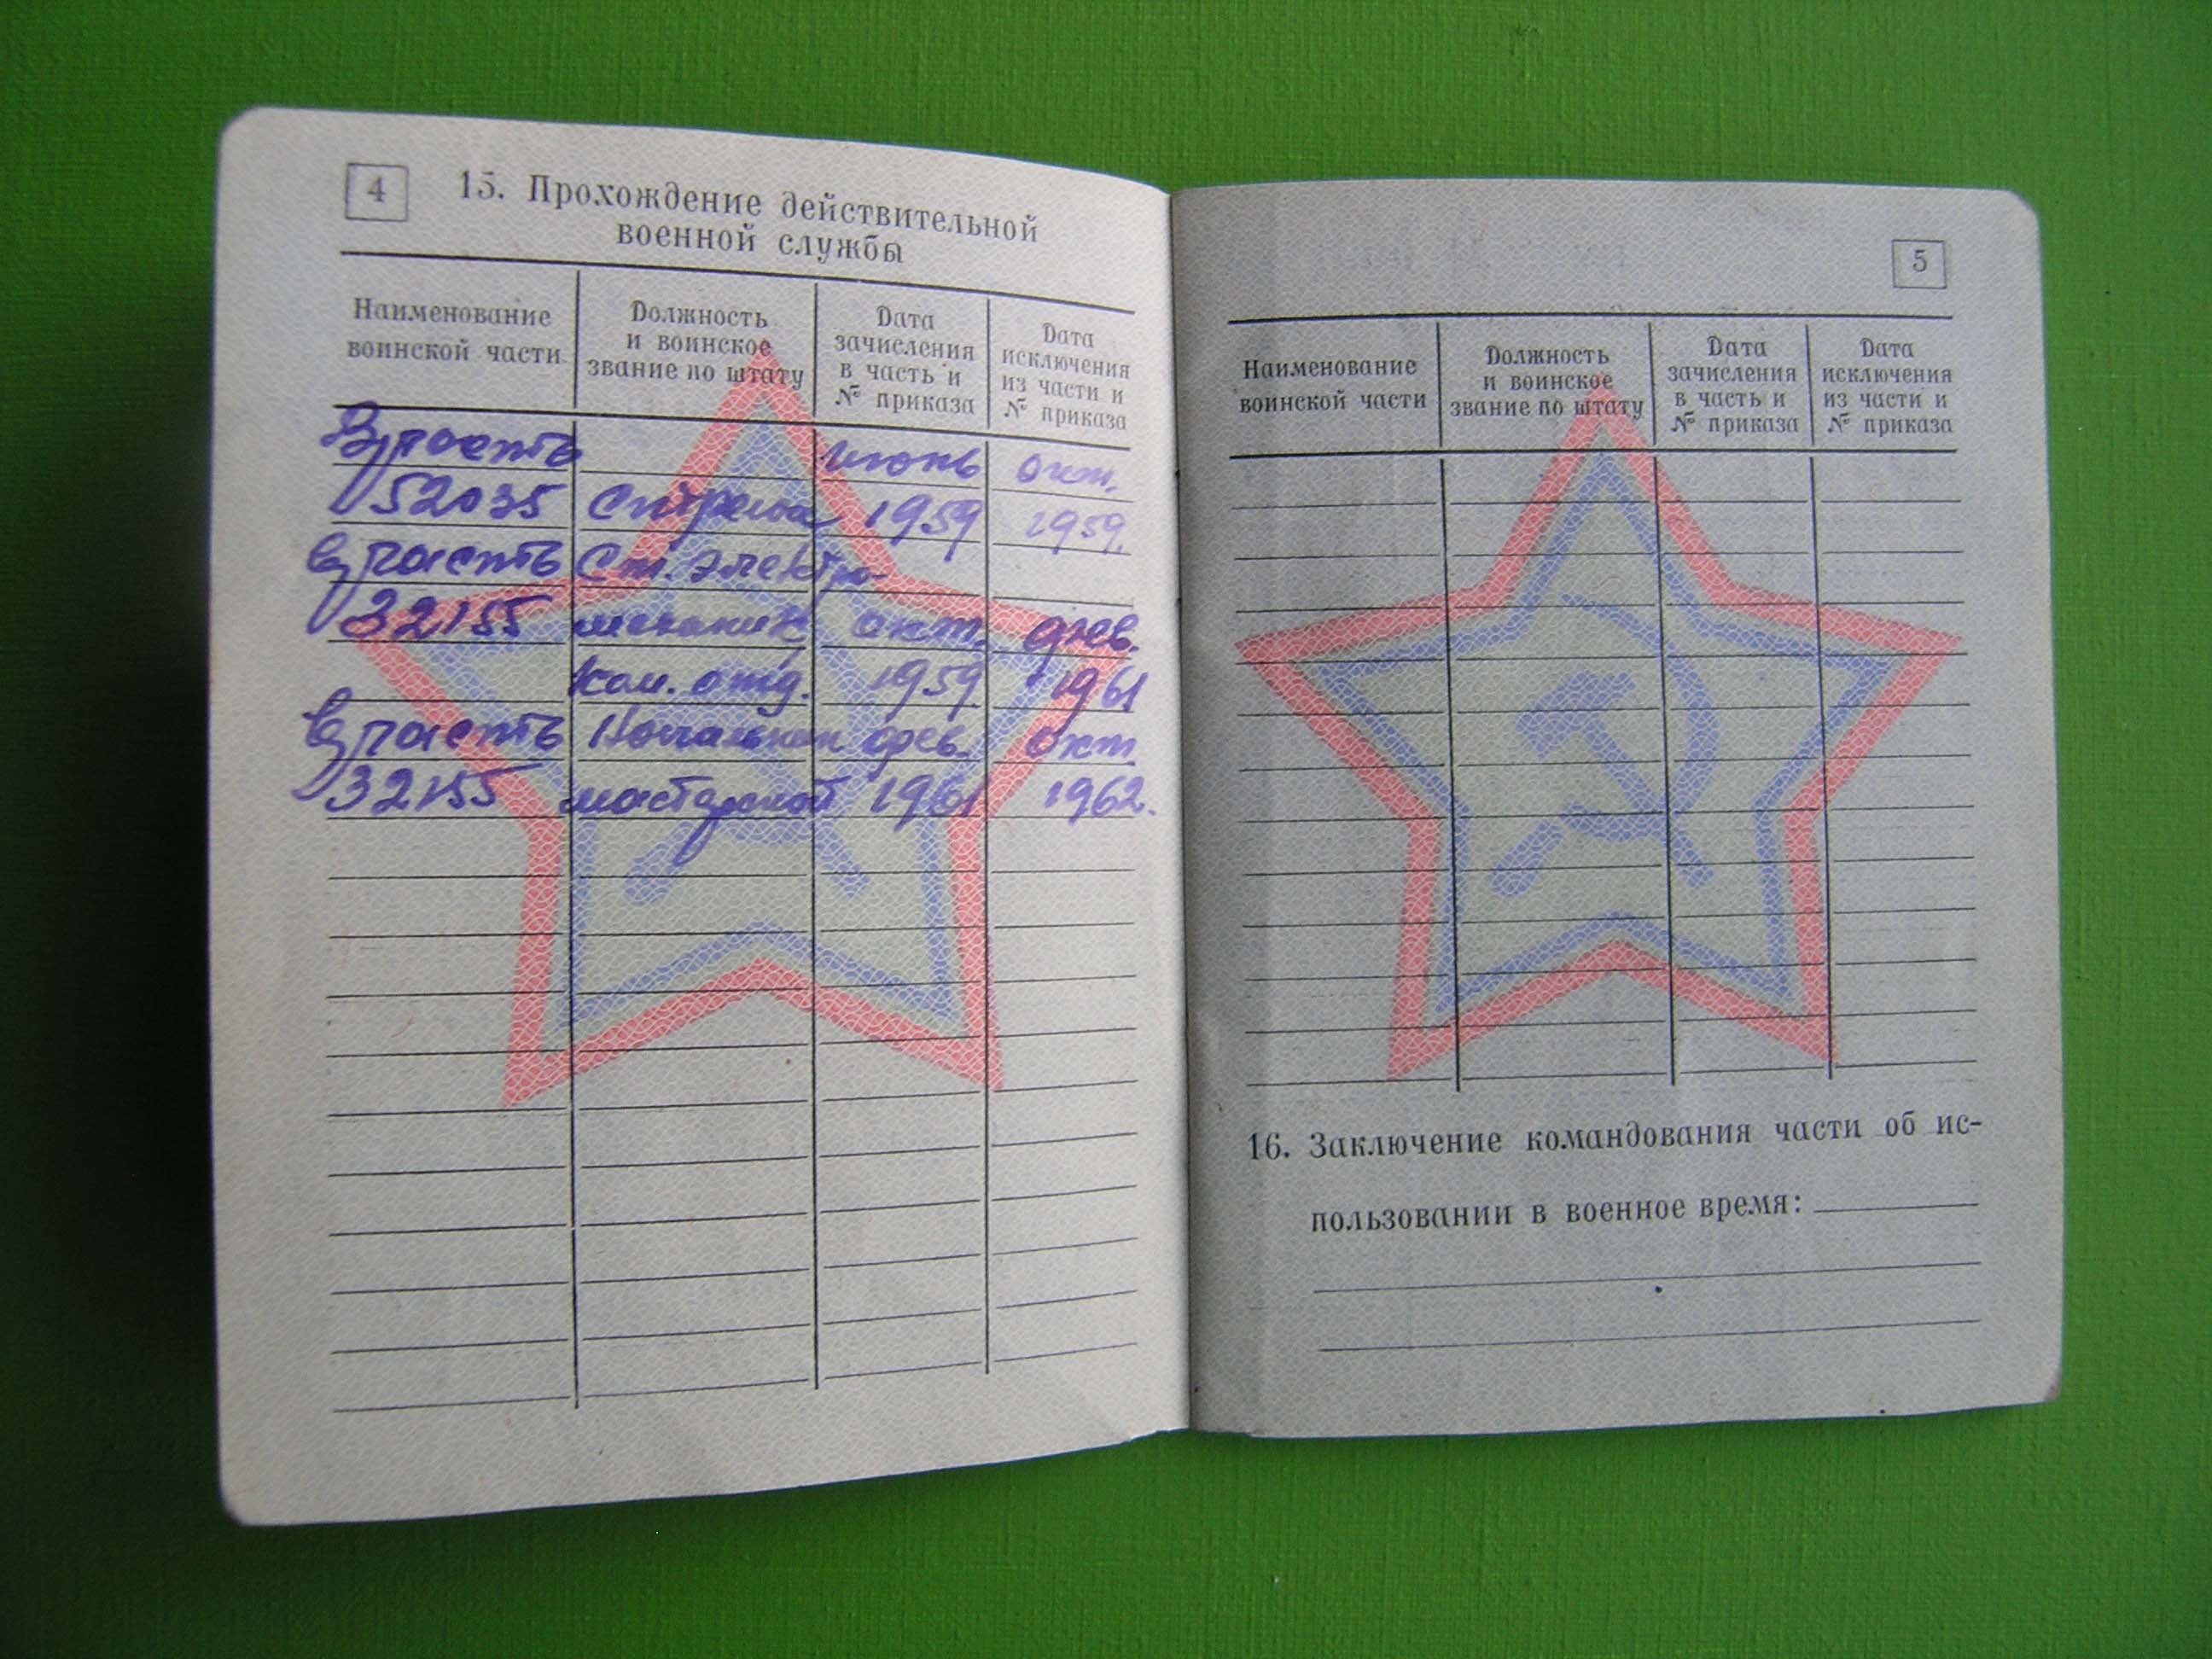 4
15. Прохождение действительной
военной службы
Наименование
воинской части
Должность
и воинское
звание по штату
Дата
зачисления
в часть и
№ приказа
Дата
исключения
из части и
№ приказа
В/часть июнь окт.
52035 Стрелок 1959 1959.
в/часть Ст. электро-
32155 механик окт. фев.
Ком. отд. 1959 1961
в/часть Начальник фев. окт
32155 мастерской 1961 1962.
5
Наименование
воинской части
Должность
и воинское
звание по штату
Дата
зачисления
в часть и
№ приказа
Дата
исключения
из части и
№ приказа
16. Заключение командования части об ис-
пользовании в военное время: